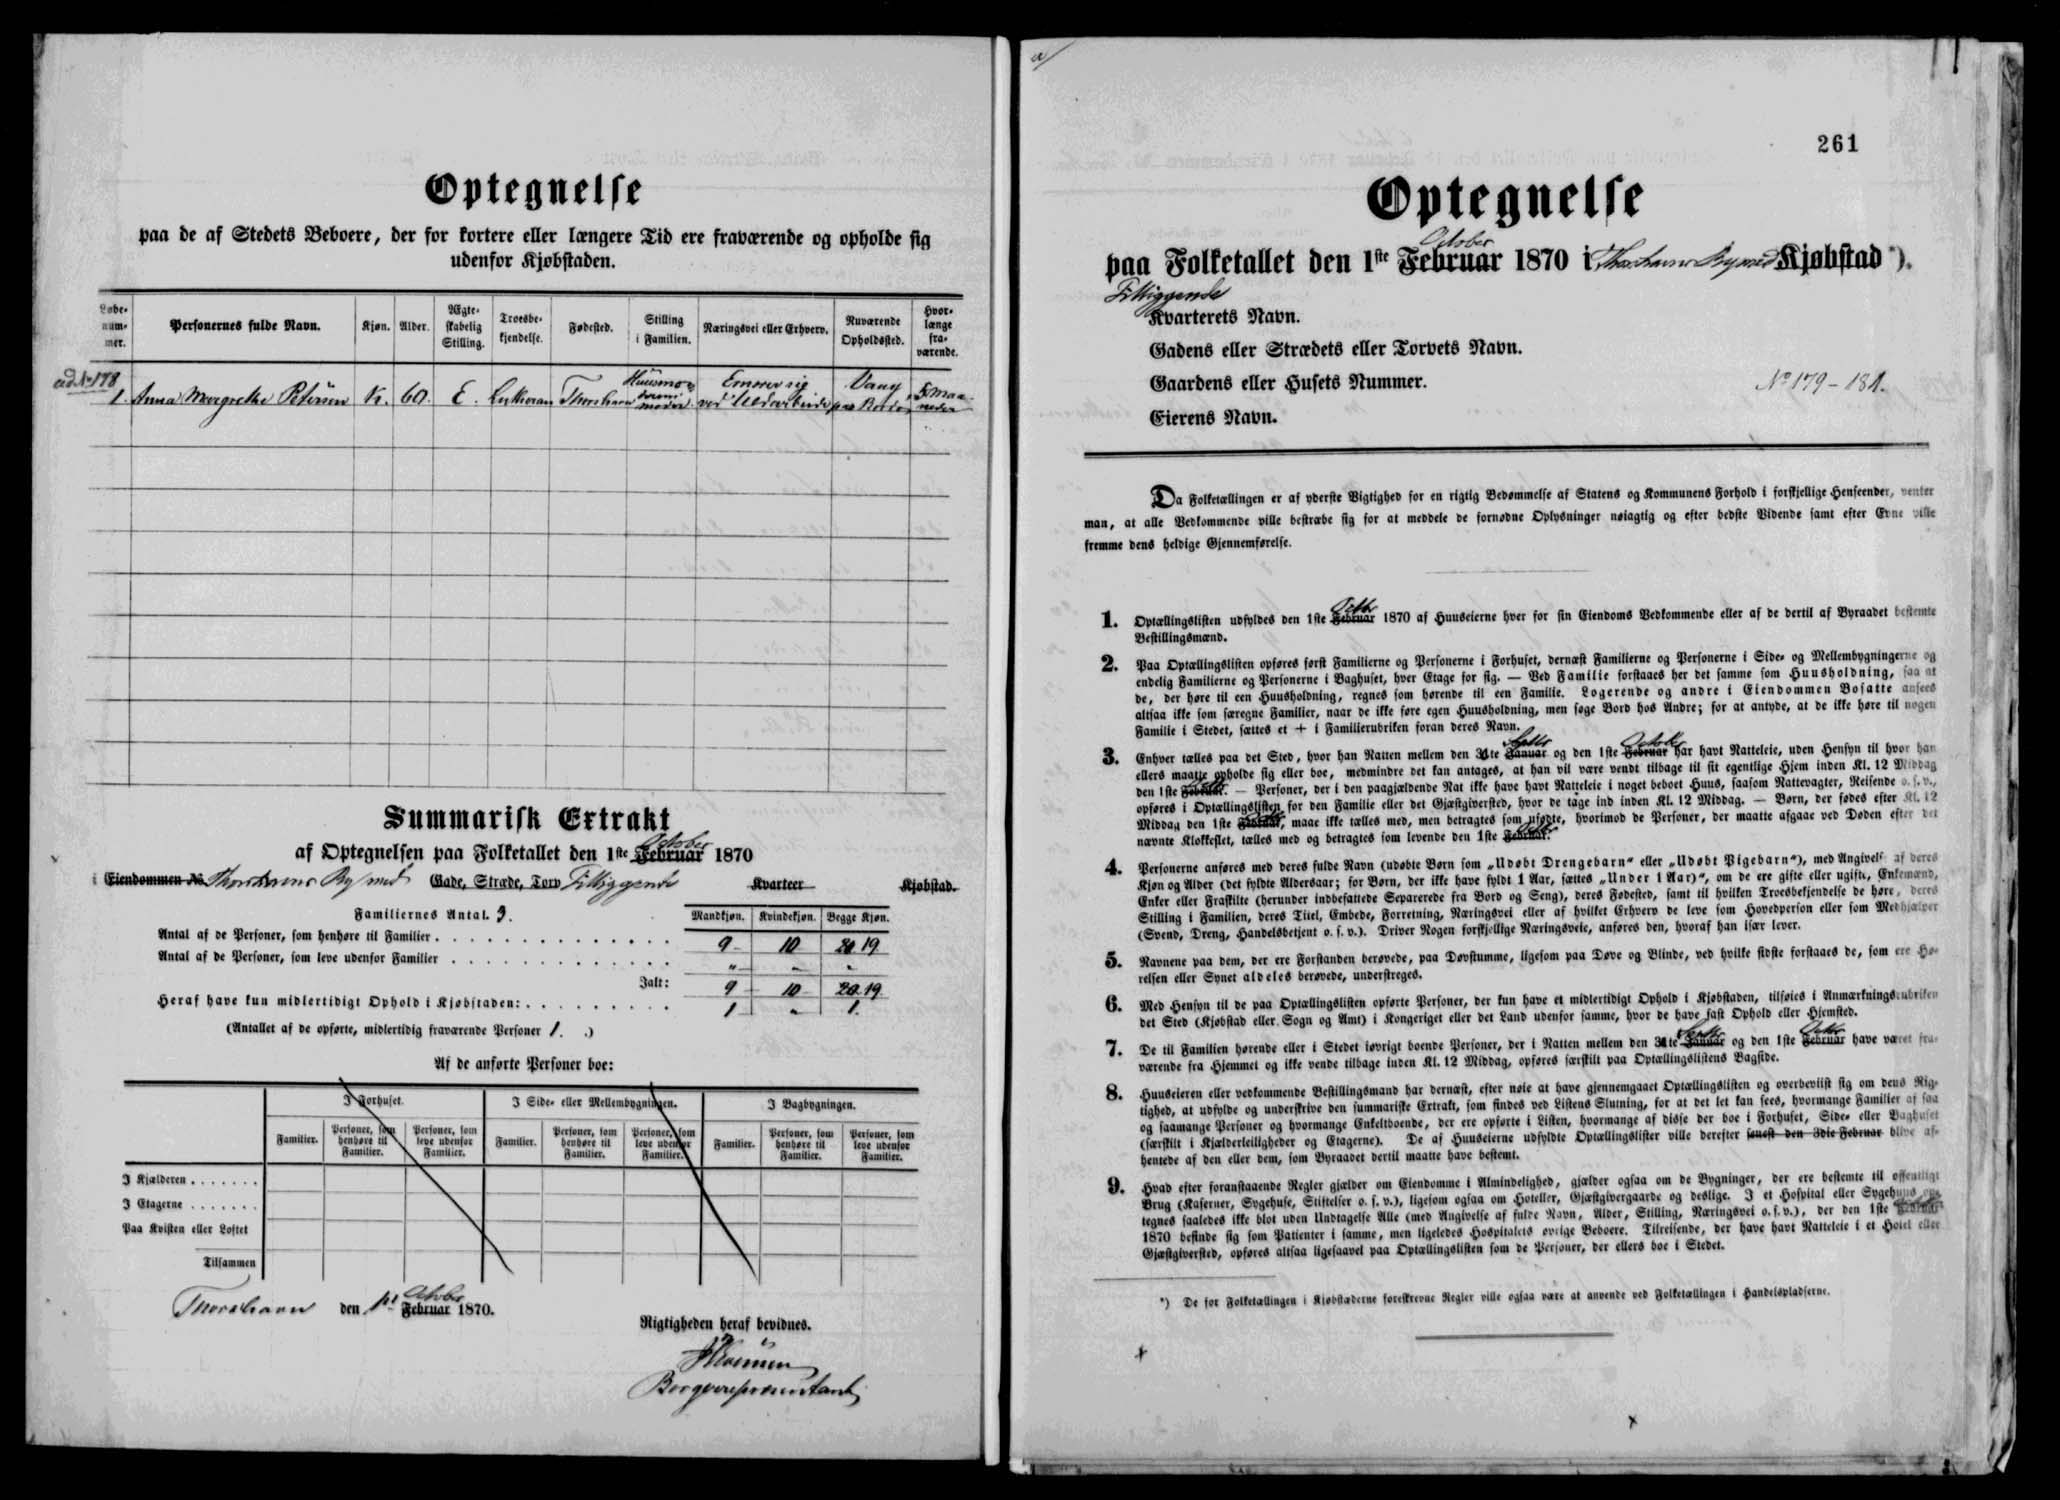 Optegnelse
paa de af Stedets Beboere, der for kortere eller længere Tid ere fraværende og opholde sig
udenfor Kjøbstaden.
Løbe-nummer. Personernes fulde Navn. Kjøn. Alder. Ægteskabelig Stilling. Troesbekjendelse. Fødested. Stilling i Familien. Næringsvei eller Erhverv. Nuværende Opholdssted. Hvorlænge fraværende.
ad. No 178
1. Anna Margrethe Petersen K. 60. E. Luthersk Thorshavn Huusmoders moder Ernærer sig ved Uldarbeide Vaag paa Bordø 5 Maaneder
Summarisk Extrakt
af Optegnelsen paa Folketallet den 1ste Februar October 1870
i Eiendommen No Thorshavns By med Gade, Stræde, Torv Tilliggende Kvarteer Kjøbstad.
Familiernes Antal. 3. Mandkjøn. Kvindekjøn. Begge Kjøn.
Antal af de Personer, som henhøre til Familier 9 10 20 19
Antal af de Personer, som leve udenfor Familier " " "
Ialt: 9 10 20 19
Heraf have kun midlertidigt Ophold i Kjøbstaden: 1 " 1.
(Antallet af de opførte, midlertidig fraværende Personer 1. .)
Af de anførte Personer boe:
I Forhuset. I Side- eller Mellembygningen. I Bagbygningen.
Familier. Personer, som henhøre til Familier. Personer, som leve udenfor Familier. Familier. Personer, som henhøre til Familier. Personer, som leve udenfor Familier. Familier. Personer, som henhøre til Familier. Personer, som leve udenfor Familier.
I Kjælderen
I Etagerne
Paa Kvisten eller Loftet
Tilsammen
Thorshavn den 1st Februar October 1870.
Rigtigheden heraf bevidnes.
Borgerrepræsentant
261
Optegnelse
paa Folketallet den 1ste Februar October 1870 i Thorshavns By med Kjøbstad *).
Tilliggende
Kvarterets Navn.
Gadens eller Strædets eller Torvets Navn.
Gaardens eller Husets Nummer. No 179 - 181.
Eierens Navn.
Da Folketællingen er af yderste Vigtighed for en rigtig Bedømmelse af Statens og Kommunens Forhold i forskjellige Henseender, venter
man, at alle Vedkommende ville bestræbe sig for at meddele de fornødne Oplysninger nøiagtig og efter bedste Vidende samt efter Evne ville
fremme dens heldige Gjennemførelse.
1. Optællingslisten udfyldes den 1ste Februar Octbr 1870 af Huuseierne hver for sin Eiendoms Vedkommende eller af de dertil af Byraadet bestemte
Bestillingsmænd.
2. Paa Optællingslisten opføres først Familierne og Personerne i Forhuset, dernæst Familierne og Personerne i Side- og Mellembygningerne og
endelig Familierne og Personerne i Baghuset, hver Etage for sig. — Ved Familie forstaaes her det samme som Huusholdning, saa at
de, der høre til een Huusholdning, regnes som hørende til een Familie. Logerende og andre i Eiendommen Bosatte ansees
altsaa ikke som særegne Familier, naar de ikke føre egen Huusholdning, men søge Bord hos Andre; for at antyde, at de ikke høre til nogen
Familie i Stedet, sættes et + i Familierubriken foran deres Navn.
3. Enhver tælles paa det Sted, hvor han Natten mellem den 30te Januar Septbr og den 1ste Februar October har havt Natteleie, uden Hensyn til hvor han
ellers maatte opholde sig eller boe, medmindre det kan antages, at han vil være vendt tilbage til sit egentlige Hjem inden Kl. 12 Middag
den 1ste Februar Octbr. — Personer, der i den paagjældende Nat ikke have havt Natteleie i noget beboet Huus, saasom Nattevagter, Reisende o. s. v.,
opføres i Optællingslisten for den Familie eller det Gjæstgiversted, hvor de tage ind inden Kl. 12 Middag. — Børn, der fødes efter Kl. 12
Middag den 1ste Februar Octbr, maae ikke tælles med, men betragtes som ufødte, hvorimod de Personer, der maatte afgaae ved Døden efter det
nævnte Klokkeslet, tælles med og betragtes som levende den 1ste Februar Octbr.
4. Personerne anføres med deres fulde Navn (udøbte Børn som „Udøbt Drengebarn“ eller „Udøbt Pigebarn“), med Angivelse af deres
Kjøn og Alder (det fyldte Aldersaar; for Børn, der ikke have fyldt 1 Aar, sættes „Under 1 Aar)“, om de ere gifte eller ugifte, Enkemænd,
Enker eller Fraskilte (herunder indbefattede Separerede fra Bord og Seng), deres Fødested, samt til hvilken Troesbekjendelse de høre, deres
Stilling i Familien, deres Titel, Embede, Forretning, Næringsvei eller af hvilket Erhverv de leve som Hovedperson eller som Medhjælper
(Svend, Dreng, Handelsbetjent o. s. v.). Driver Nogen forskjellige Næringsveie, anføres den, hvoraf han især lever.
5. Navnene paa dem, der ere Forstanden berøvede, paa Døvstumme, ligesom paa Døve og Blinde, ved hvilke sidste forstaaes de, som ere Hø-
relsen eller Synet aldeles berøvede, understreges.
6. Med Hensyn til de paa Optællingslisten opførte Personer, der kun have et midlertidigt Ophold i Kjøbstaden, tilføies i Anmærkningsrubriken
det Sted (Kjøbstad eller Sogn og Amt) i Kongeriget eller det Land udenfor samme, hvor de have fast Ophold eller Hjemsted.
7. De til Familien hørende eller i Stedet iøvrigt boende Personer, der i Natten mellem den 30te Januar Septbr og den 1ste Februar Octbr have været fra-
værende fra Hjemmet og ikke vende tilbage inden Kl. 12 Middag, opføres særskilt paa Optællingslistens Bagside.
8. Huuseieren eller vedkommende Bestillingsmand har dernæst, efter nøie at have gjennemgaaet Optællingslisten og overbeviist sig om dens Rig-
tighed, at udfylde og underskrive den summariske Extrakt, som findes ved Listens Slutning, for at det let kan sees, hvormange Familier af saa
og saamange Personer og hvormange Enkeltboende, der ere opførte i Listen, hvormange af disse der boe i Forhuset, Side- eller Baghuset
(særskilt i Kjælderleiligheder og Etagerne). De af Huuseierne udfyldte Optællingslister ville derefter senest den 3die Februar blive af-
hentede af den eller dem, som Byraadet dertil maatte have bestemt.
9. Hvad efter foranstaaende Regler gjælder om Eiendomme i Almindelighed, gjælder ogsaa om de Bygninger, der ere bestemte til offentligt
Brug (Kaserner, Sygehuse, Stiftelser o. s. v.), ligesom ogsaa om Hoteller, Gjæstgivergaarde og deslige. I et Hospital eller Sygehuus op-
tegnes saaledes ikke blot uden Undtagelse Alle (med Angivelse af fulde Navn, Alder, Stilling, Næringsvei o. s. v.), der den 1ste Februar
1870 befinde sig som Patienter i samme, men ligeledes Hospitalets øvrige Beboere. Tilreisende, der have havt Natteleie i et Hotel eller
Gjæstgiversted, opføres altsaa ligesaavel paa Optællingslisten som de Personer, der ellers boe i Stedet.
*) De for Folketællingen i Kjøbstæderne foreskrevne Regler ville ogsaa være at anvende ved Folketællingen i Handelspladserne.